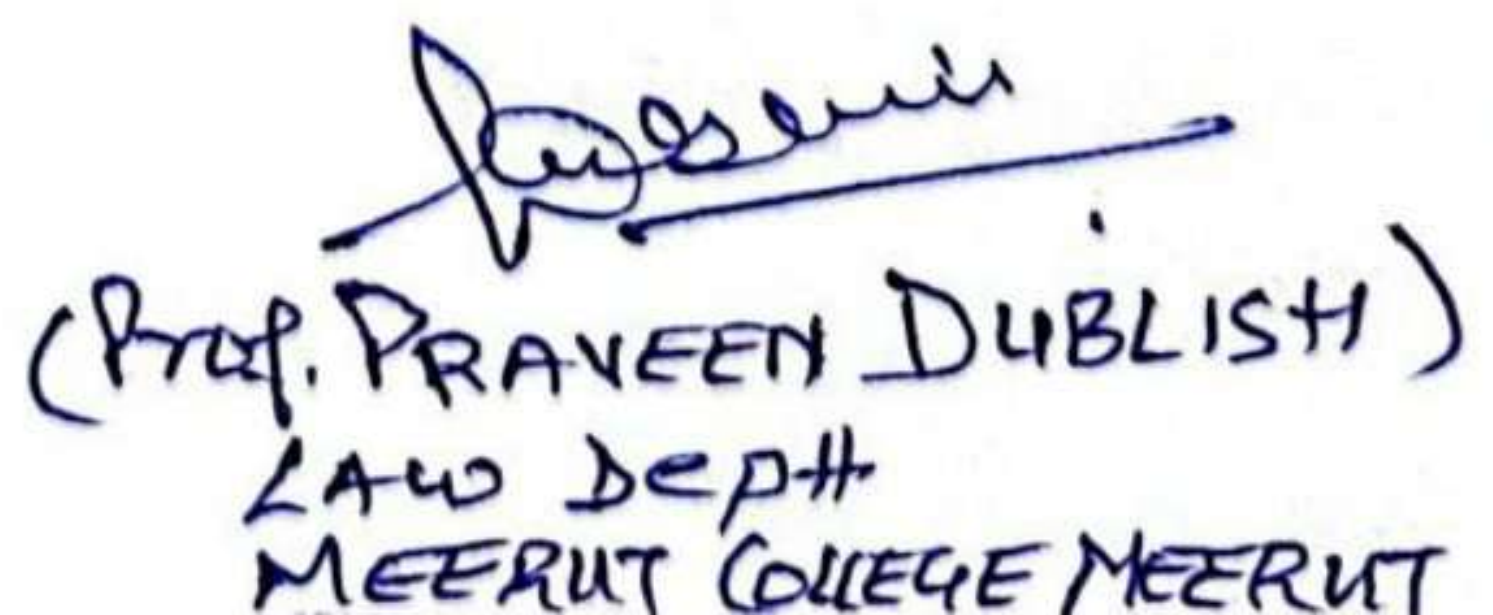 (Prof. PRAVEEN DUBLISH)
LAW Deptt
MEERUT COLLEGE MEERUT